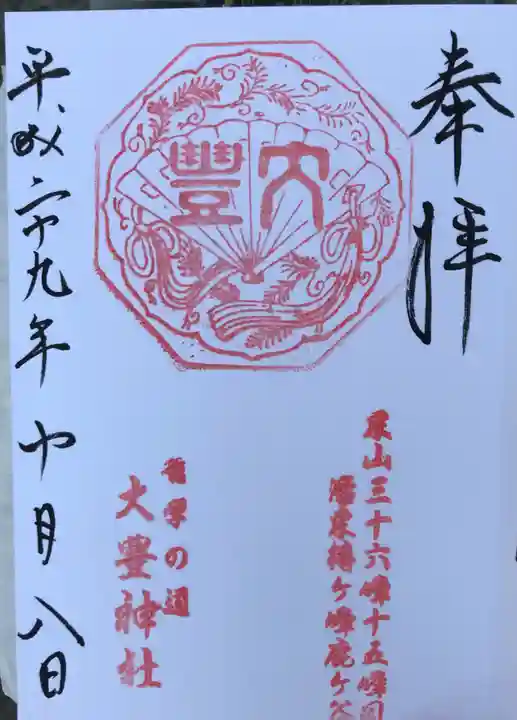 奉拝
東山三十六峰十五峰目
椿ケ峰鹿ケ谷
大豊
哲学の道
大豊神社
平成二十九年十月八日